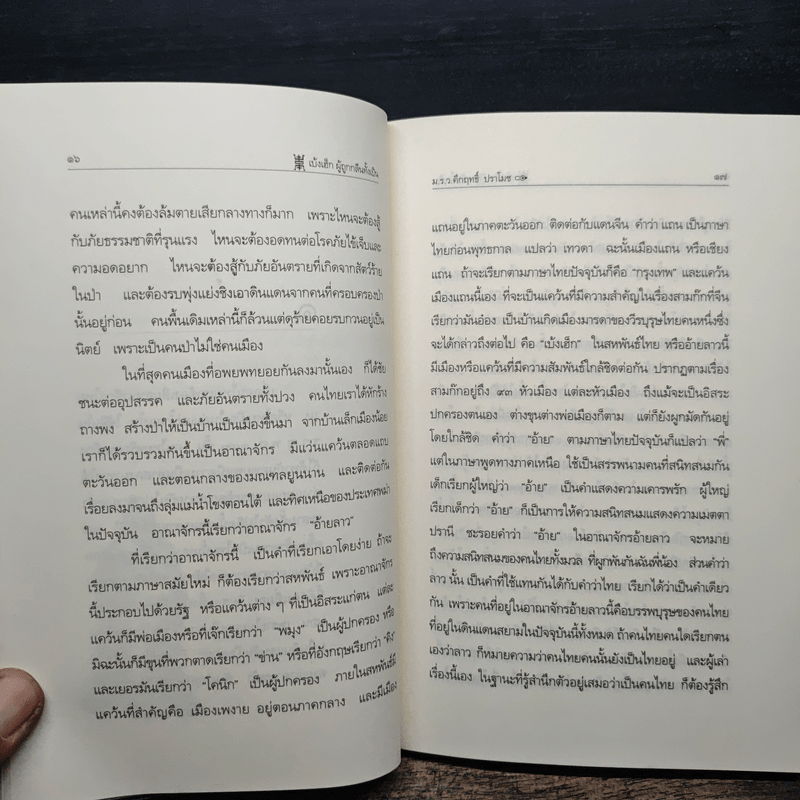 ๑๖
เบ้งเฮ็ก ผู้ถูกกลืนทั้งเป็น
คนเหล่านี้คงต้องล้มตายเสียกลางทางก็มาก เพราะไหนจะต้องสู้
กับภัยธรรมชาติที่รุนแรง ไหนจะต้องอดทนต่อโรคภัยไข้เจ็บและ
ความอดอยาก ไหนจะต้องสู้กับภัยอันตรายที่เกิดจากสัตว์ร้าย
ในป่า และต้องรบพุ่งแย่งชิงเอาดินแดนจากคนที่ครอบครองป่า
นั้นอยู่ก่อน คนพื้นเดิมเหล่านี้ก็ล้วนแต่ดุร้ายคอยรบกวนอยู่เป็น
นิตย์ เพราะเป็นคนป่าไม่ใช่คนเมือง
ในที่สุดคนเมืองที่อพยพทยอยกันลงมานั้นเอง ก็ได้ชัย
ชนะต่ออุปสรรค และภัยอันตรายทั้งปวง คนไทยเราได้หักร้าง
ถางพง สร้างป่าให้เป็นบ้านเป็นเมืองขึ้นมา จากบ้านเล็กเมืองน้อย
เราก็ได้รวบรวมกันขึ้นเป็นอาณาจักร มีแว่นแคว้นตลอดแถบ
ตะวันออก และตอนกลางของมณฑลยูนนาน และติดต่อกัน
เรื่อยลงมาจนถึงลุ่มแม่น้ำโขงตอนใต้ และทิศเหนือของประเทศพม่า
ในปัจจุบัน อาณาจักรนี้เรียกว่าอาณาจักร “อ้ายลาว”
ที่เรียกว่าอาณาจักรนี้ เป็นคำที่เรียกเอาโดยง่าย ถ้าจะ
เรียกตามภาษาสมัยใหม่ ก็ต้องเรียกว่าสหพันธ์ เพราะอาณาจักร
นี้ประกอบไปด้วยรัฐ หรือแคว้นต่าง ๆ ที่เป็นอิสระแก่ตน แต่ละ
แคว้นก็มีพ่อเมืองหรือที่เจ๊กเรียกว่า “พมุง” เป็นผู้ปกครอง หรือ
มิฉะนั้นก็มีขุนที่พวกตาดเรียกว่า “ข่าน” หรือที่อังกฤษเรียกว่า “คิง”
และเยอรมันเรียกว่า “โคนิก” เป็นผู้ปกครอง ภายในสหพันธ์มี
แคว้นที่สำคัญคือ เมืองเพงาย อยู่ตอนภาคกลาง และมีเมือง
ม.ร.ว.คึกฤทธิ์ ปราโมช
๑๗
แถนอยู่ในภาคตะวันออก ติดต่อกับแดนจีน คำว่า แถน เป็นภาษา
ไทยก่อนพุทธกาล แปลว่า เทวดา ฉะนั้นเมืองแถน หรือเชียง
แถน ถ้าจะเรียกตามภาษาไทยปัจจุบันก็คือ “กรุงเทพ” และแคว้น
เมืองแถนนี้เอง ที่จะเป็นแคว้นที่มีความสำคัญในเรื่องสามก๊กที่จีน
เรียกว่ามันอ๋อง เป็นบ้านเกิดเมืองมารดาของวีรบุรุษไทยคนหนึ่งซึ่ง
จะได้กล่าวถึงต่อไป คือ “เบ้งเฮ็ก” ในสหพันธ์ไทย หรืออ้ายลาวนี้
มีเมืองหรือแคว้นที่มีความสัมพันธ์ใกล้ชิดต่อกัน ปรากฏตามเรื่อง
สามก๊กอยู่ถึง ๙๓ หัวเมือง แต่ละหัวเมือง ถึงแม้จะเป็นอิสระ
ปกครองตนเอง ต่างขุนต่างพ่อเมืองก็ตาม แต่ก็ยังผูกมัดกันอยู่
โดยใกล้ชิด คำว่า “อ้าย” ตามภาษาไทยปัจจุบันก็แปลว่า “พี่”
แต่ในภาษาพูดทางภาคเหนือ ใช้เป็นสรรพนามคนที่สนิทสนมกัน
เด็กเรียกผู้ใหญ่ว่า “อ้าย” เป็นคำแสดงความเคารพรัก ผู้ใหญ่
เรียกเด็กว่า “อ้าย” ก็เป็นการให้ความสนิทสนมแสดงความเมตตา
ปรานี ชะรอยคำว่า “อ้าย” ในอาณาจักรอ้ายลาว จะหมาย
ถึงความสนิทสนมของคนไทยทั้งมวล ที่ผูกพันกันฉันพี่น้อง ส่วนคำว่า
ลาว นั้น เป็นคำที่ใช้แทนกันได้กับคำว่าไทย เรียกได้ว่าเป็นคำเดียว
กัน เพราะคนที่อยู่ในอาณาจักรอ้ายลาวนี้คือบรรพบุรุษของคนไทย
ที่อยู่ในดินแดนสยามในปัจจุบันนี้ทั้งหมด ถ้าคนไทยคนใดเรียกตน
เองว่าลาว ก็หมายความว่าคนไทยคนนั้นยังเป็นไทยอยู่ และผู้เล่า
เรื่องนี้เอง ในฐานะที่รู้สำนึกตัวอยู่เสมอว่าเป็นคนไทย ก็ต้องรู้สึก